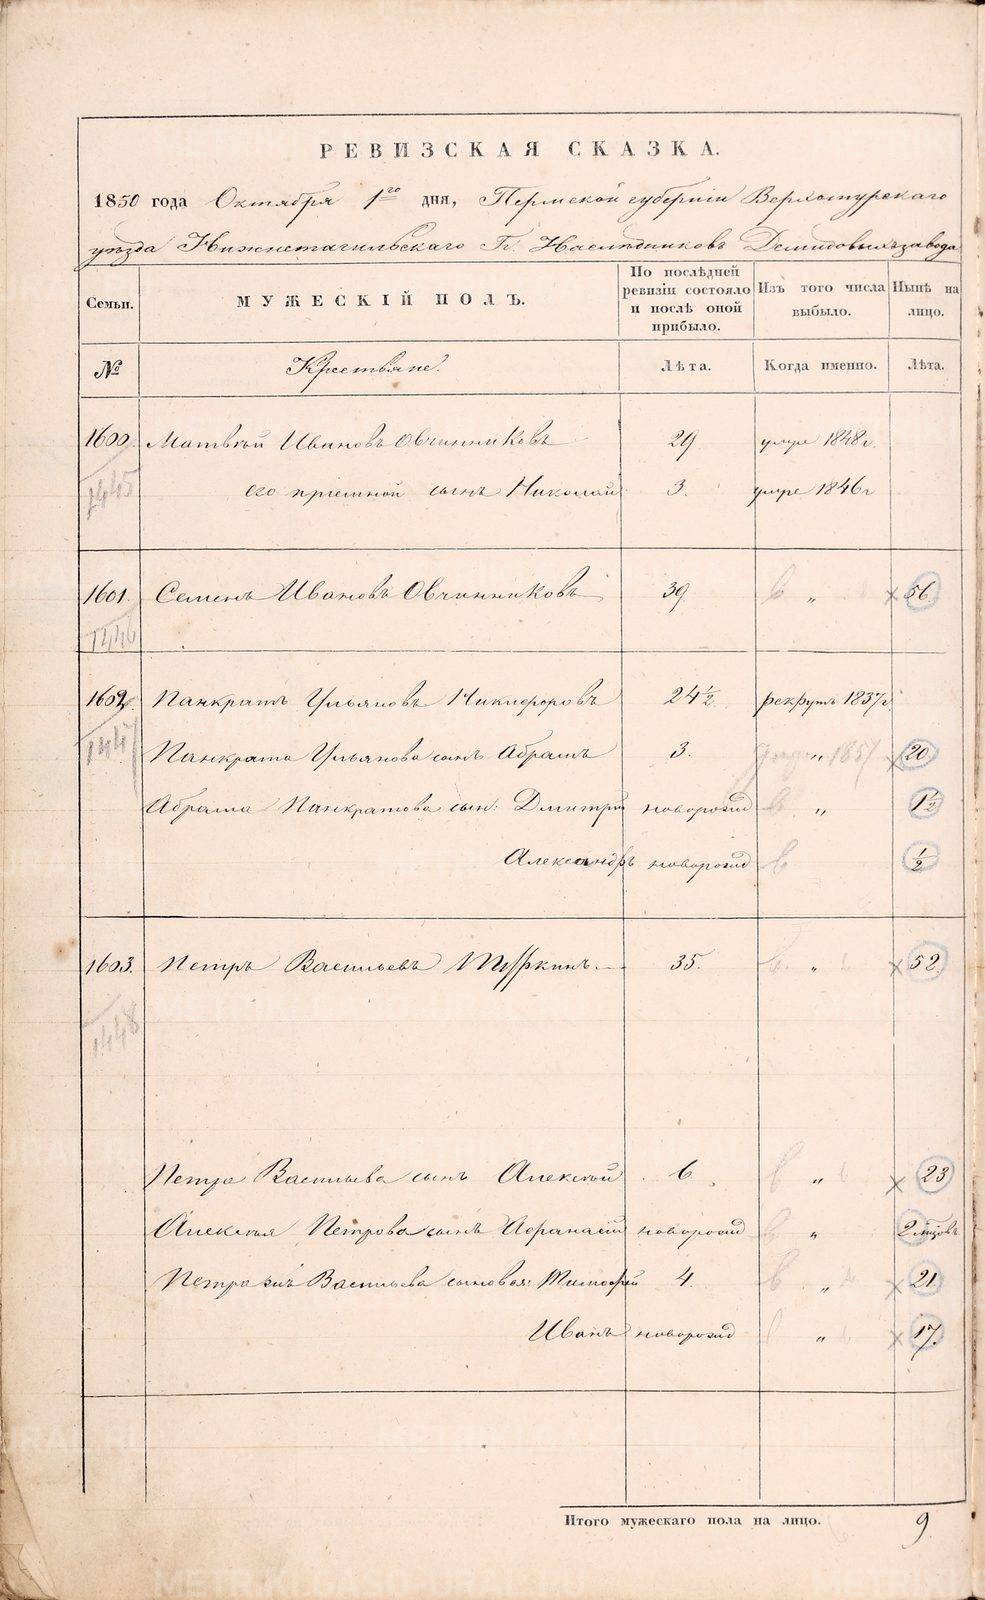 РЕВИЗСКАЯ СКАЗКА.
1850 года Октября 1го дня, Пермской губерніи Верхотурскаго
уѣзда Нижнетагильскаго Гг. Наслѣдниковъ Демидовыхъ завода
Семьи. МУЖЕСКІЙ ПОЛЪ. По послѣдней ревизіи состояло и послѣ оной прибыло. Изъ того числа выбыло. Нынѣ на лицо.
№ Крестьяне. Лѣта. Когда именно. Лѣта.
1600. Матвѣй Ивановъ Овчинниковъ 29 умре 1848 г.
1445 его пріемной сынъ Николай 3. умре 1846 г
1601. Семенъ Ивановъ Овчинниковъ 39 „ 56
1446
1602. Панкратъ Ульяновъ Никифоровъ 24 1/2 рекрутъ 1837 г.
1447 Панкрата Ульянова сынъ Абрамъ 3. „ 1857 20
Абрама Панкратова сын: Дмитрій новорожд „ 1 1/2
Александръ новорожд 1/2
1603. Петръ Васильевъ 35. „ 52
1448
Петра Васильева сынъ Алексѣй 6 „ 23
Алексѣя Петрова сынъ Афанасій новорожд „ 2 мѣсяцовъ
Петра Васильева сыновья: Тимофей 4. „ 21
Иванъ новорожд „ 17.
Итого мужескаго пола на лицо. 9
METRIKI.GASO-URAL.RU